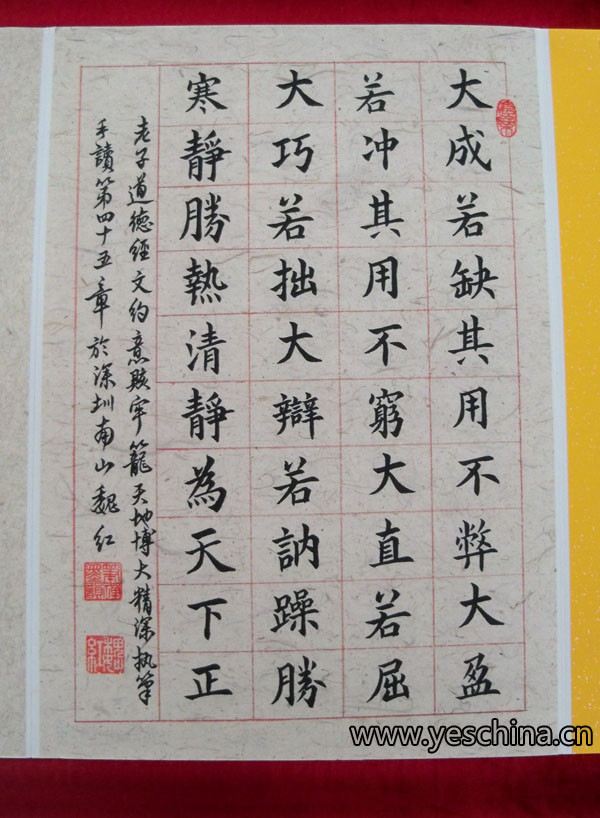 大成若缺其用不弊大盈
若冲其用不窮大直若屈
大巧若拙大辯若訥躁勝
寒靜勝熱清靜為天下正
老子道德經文约意赅牢籠天地博大精深执筆
手讀第四十五章於深圳南山魏红
www.yeschina.cn